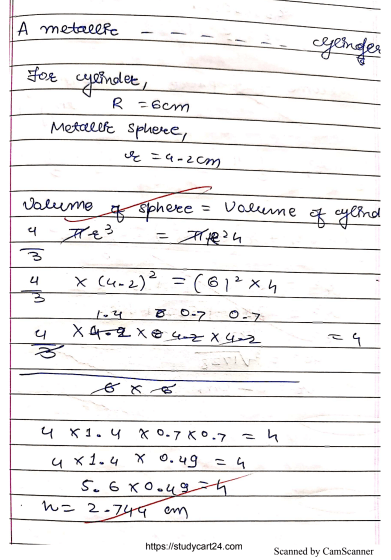 A metallic - - - - - - - cylinder
For cylinder,
R = 6cm
Metallic sphere,
r = 4.2cm
Volume of sphere = Volume of cylind
4/3 πr³ = πr²h
4/3 × (4.2)² = (6)² × h
1.4 0.7 0.7
4/3 × 4.2 × 4.2 × 4.2 = h
6 × 6
4 × 1.4 × 0.7 × 0.7 = h
4 × 1.4 × 0.49 = h
5.6 × 0.49 = h
h = 2.744 cm
https://studycart24.com
Scanned by CamScanner